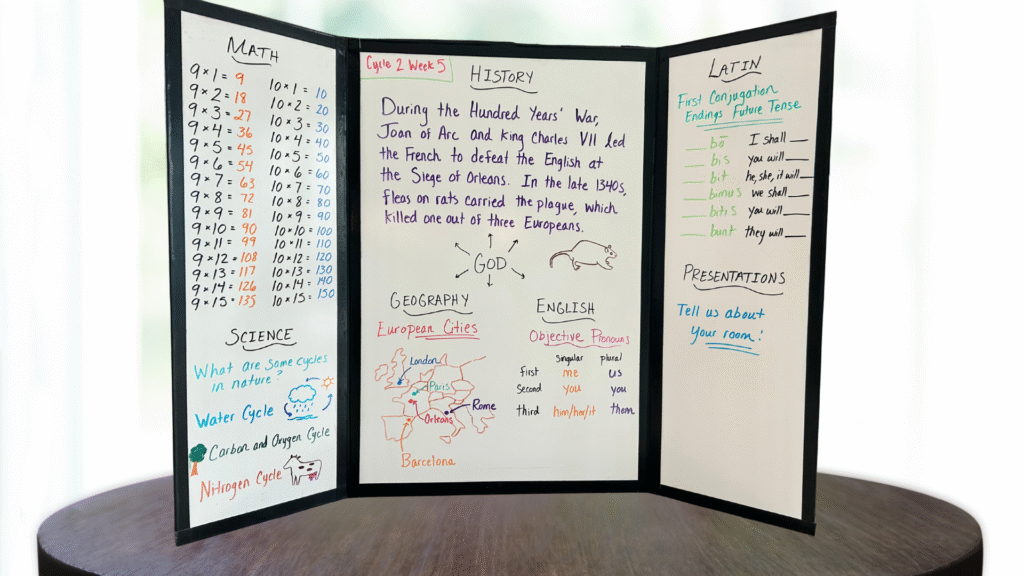 MATH
9×1= 9
9×2= 18
9×3= 27
9×4= 36
9×5= 45
9×6= 54
9×7= 63
9×8= 72
9×9= 81
9×10= 90
9×11= 99
9×12= 108
9×13= 117
9×14= 126
9×15= 135
10×1= 10
10×2= 20
10×3= 30
10×4= 40
10×5= 50
10×6= 60
10×7= 70
10×8= 80
10×9= 90
10×10= 100
10×11= 110
10×12= 120
10×13= 130
10×14= 140
10×15= 150
SCIENCE
What are some cycles
in nature?
Water Cycle
Carbon and Oxygen Cycle
Nitrogen Cycle
Cycle 2 Week 5
HISTORY
During the Hundred Years' War,
Joan of Arc and King Charles VII led
the French to defeat the English at
the Siege of Orleans. In the late 1340s,
fleas on rats carried the plague, which
killed one out of three Europeans.
GOD
GEOGRAPHY
European Cities
London
Paris
Orleans
Rome
Barcelona
ENGLISH
Objective Pronouns
singular plural
first me us
second you you
third him/her/it them
LATIN
First Conjugation
Endings Future Tense
__ bō I shall __
__ bis you will __
__ bit he, she, it will __
__ bimus we shall __
__ bitis you will __
__ bunt they will __
PRESENTATIONS
Tell us about
your room!